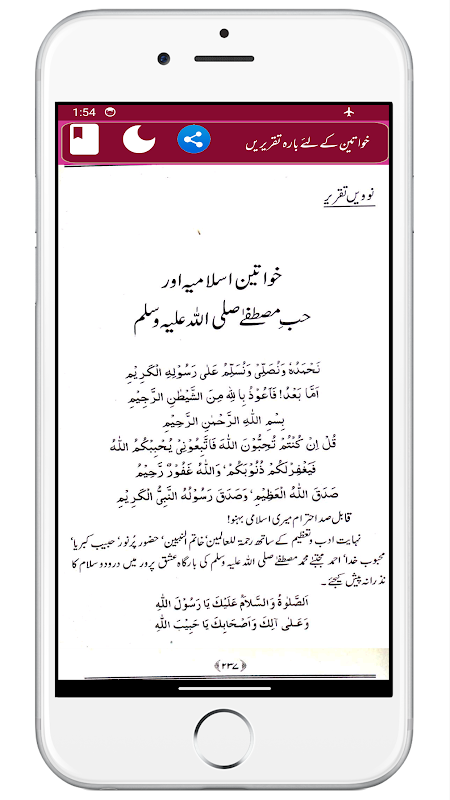 1:54
خواتین کے لئے بارہ تقریریں
نوویں تقریر
خواتین اسلامیہ اور
حبِ مصطفےٰ صلی اللہ علیہ وسلم
نَحْمَدُہٗ وَنُصَلِّیْ وَنُسَلِّمُ عَلٰی رَسُوْلِہِ الْکَرِیْمِ
اَمَّا بَعْدُ! فَاَعُوْذُ بِاللہِ مِنَ الشَّیْطٰنِ الرَّجِیْمِ
بِسْمِ اللہِ الرَّحْمٰنِ الرَّحِیْمِ
قُلْ اِنْ کُنْتُمْ تُحِبُّوْنَ اللہَ فَاتَّبِعُوْنِیْ یُحْبِبْکُمُ اللہُ
فَیَغْفِرْلَکُمْ ذُنُوْبَکُمْ‘ وَاللہُ غَفُوْرٌ رَّحِیْمٌ
صَدَقَ اللہُ الْعَظِیْمِ‘ وَصَدَقَ رَسُوْلُہُ النَّبِیُّ الْکَرِیْمِ
قابل صد احترام میری اسلامی بہنو!
نہایت ادب و تعظیم کے ساتھ رحمۃ للعالمین‘ خاتم النبیین‘ حضور پُرنور‘ حبیب کبریا‘
محبوب خدا‘ احمد مجتبےٰ محمد مصطفےٰ صلی اللہ علیہ وسلم کی بارگاہ عشق پرور میں درود و سلام کا
نذرانہ پیش کیجئے۔
اَلصَّلٰوۃُ وَالسَّلَامُ عَلَیْكَ یَا رَسُوْلَ اللہِ
وَعَلٰی آلِكَ وَاَصْحَابِكَ یَا حَبِیْبَ اللہِ
﴿۲۳۷﴾